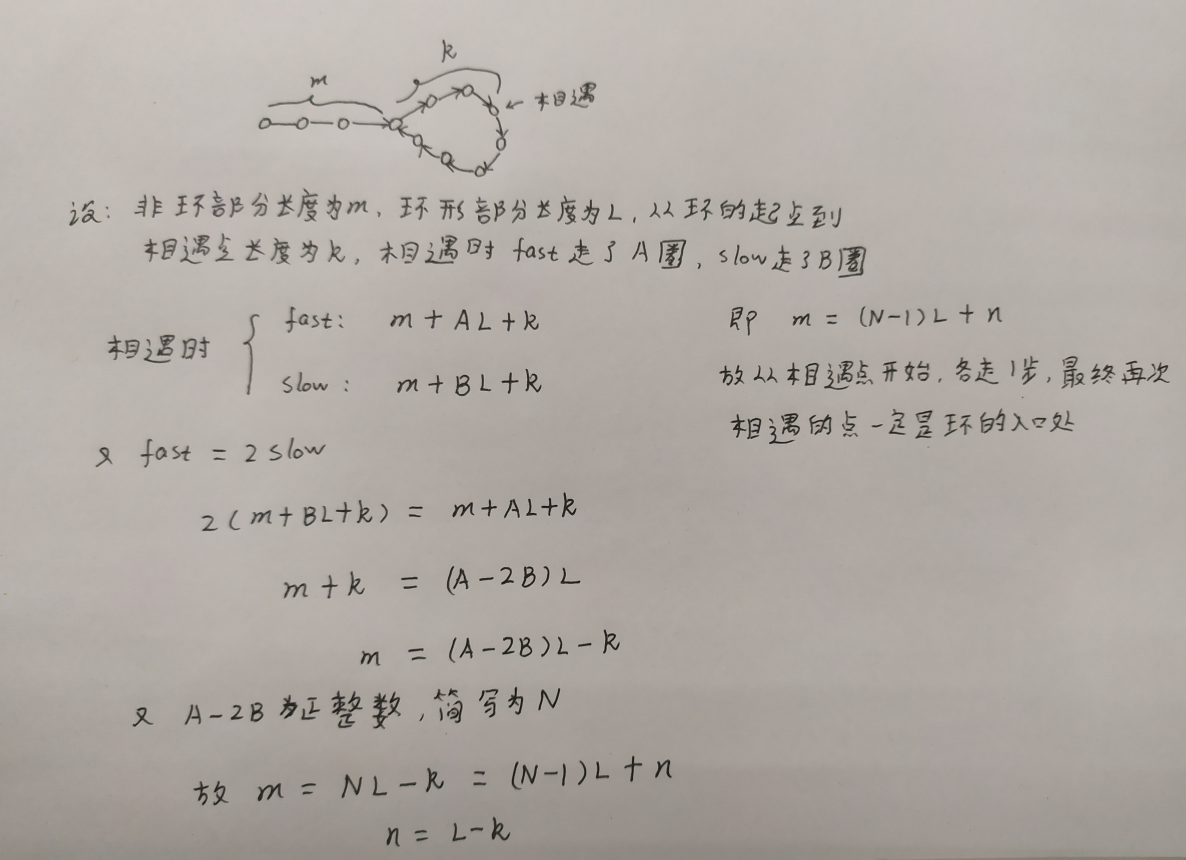 k
m
相遇
设：非环部分长度为m，环形部分长度为L，从环的起点到
相遇点长度为k，相遇时 fast走了A圈，slow走了B圈
相遇时
fast： m + AL + k
slow： m + BL + k
又 fast = 2 slow
2(m+BL+k) = m+AL+k
m + k = (A-2B)L
m = (A-2B)L - k
又 A-2B为正整数，简写为N
故 m = NL - k = (N-1)L + n
n = L-k
即 m = (N-1)L + n
故从相遇点开始，各走1步，最终再次
相遇的点一定是环的入口处